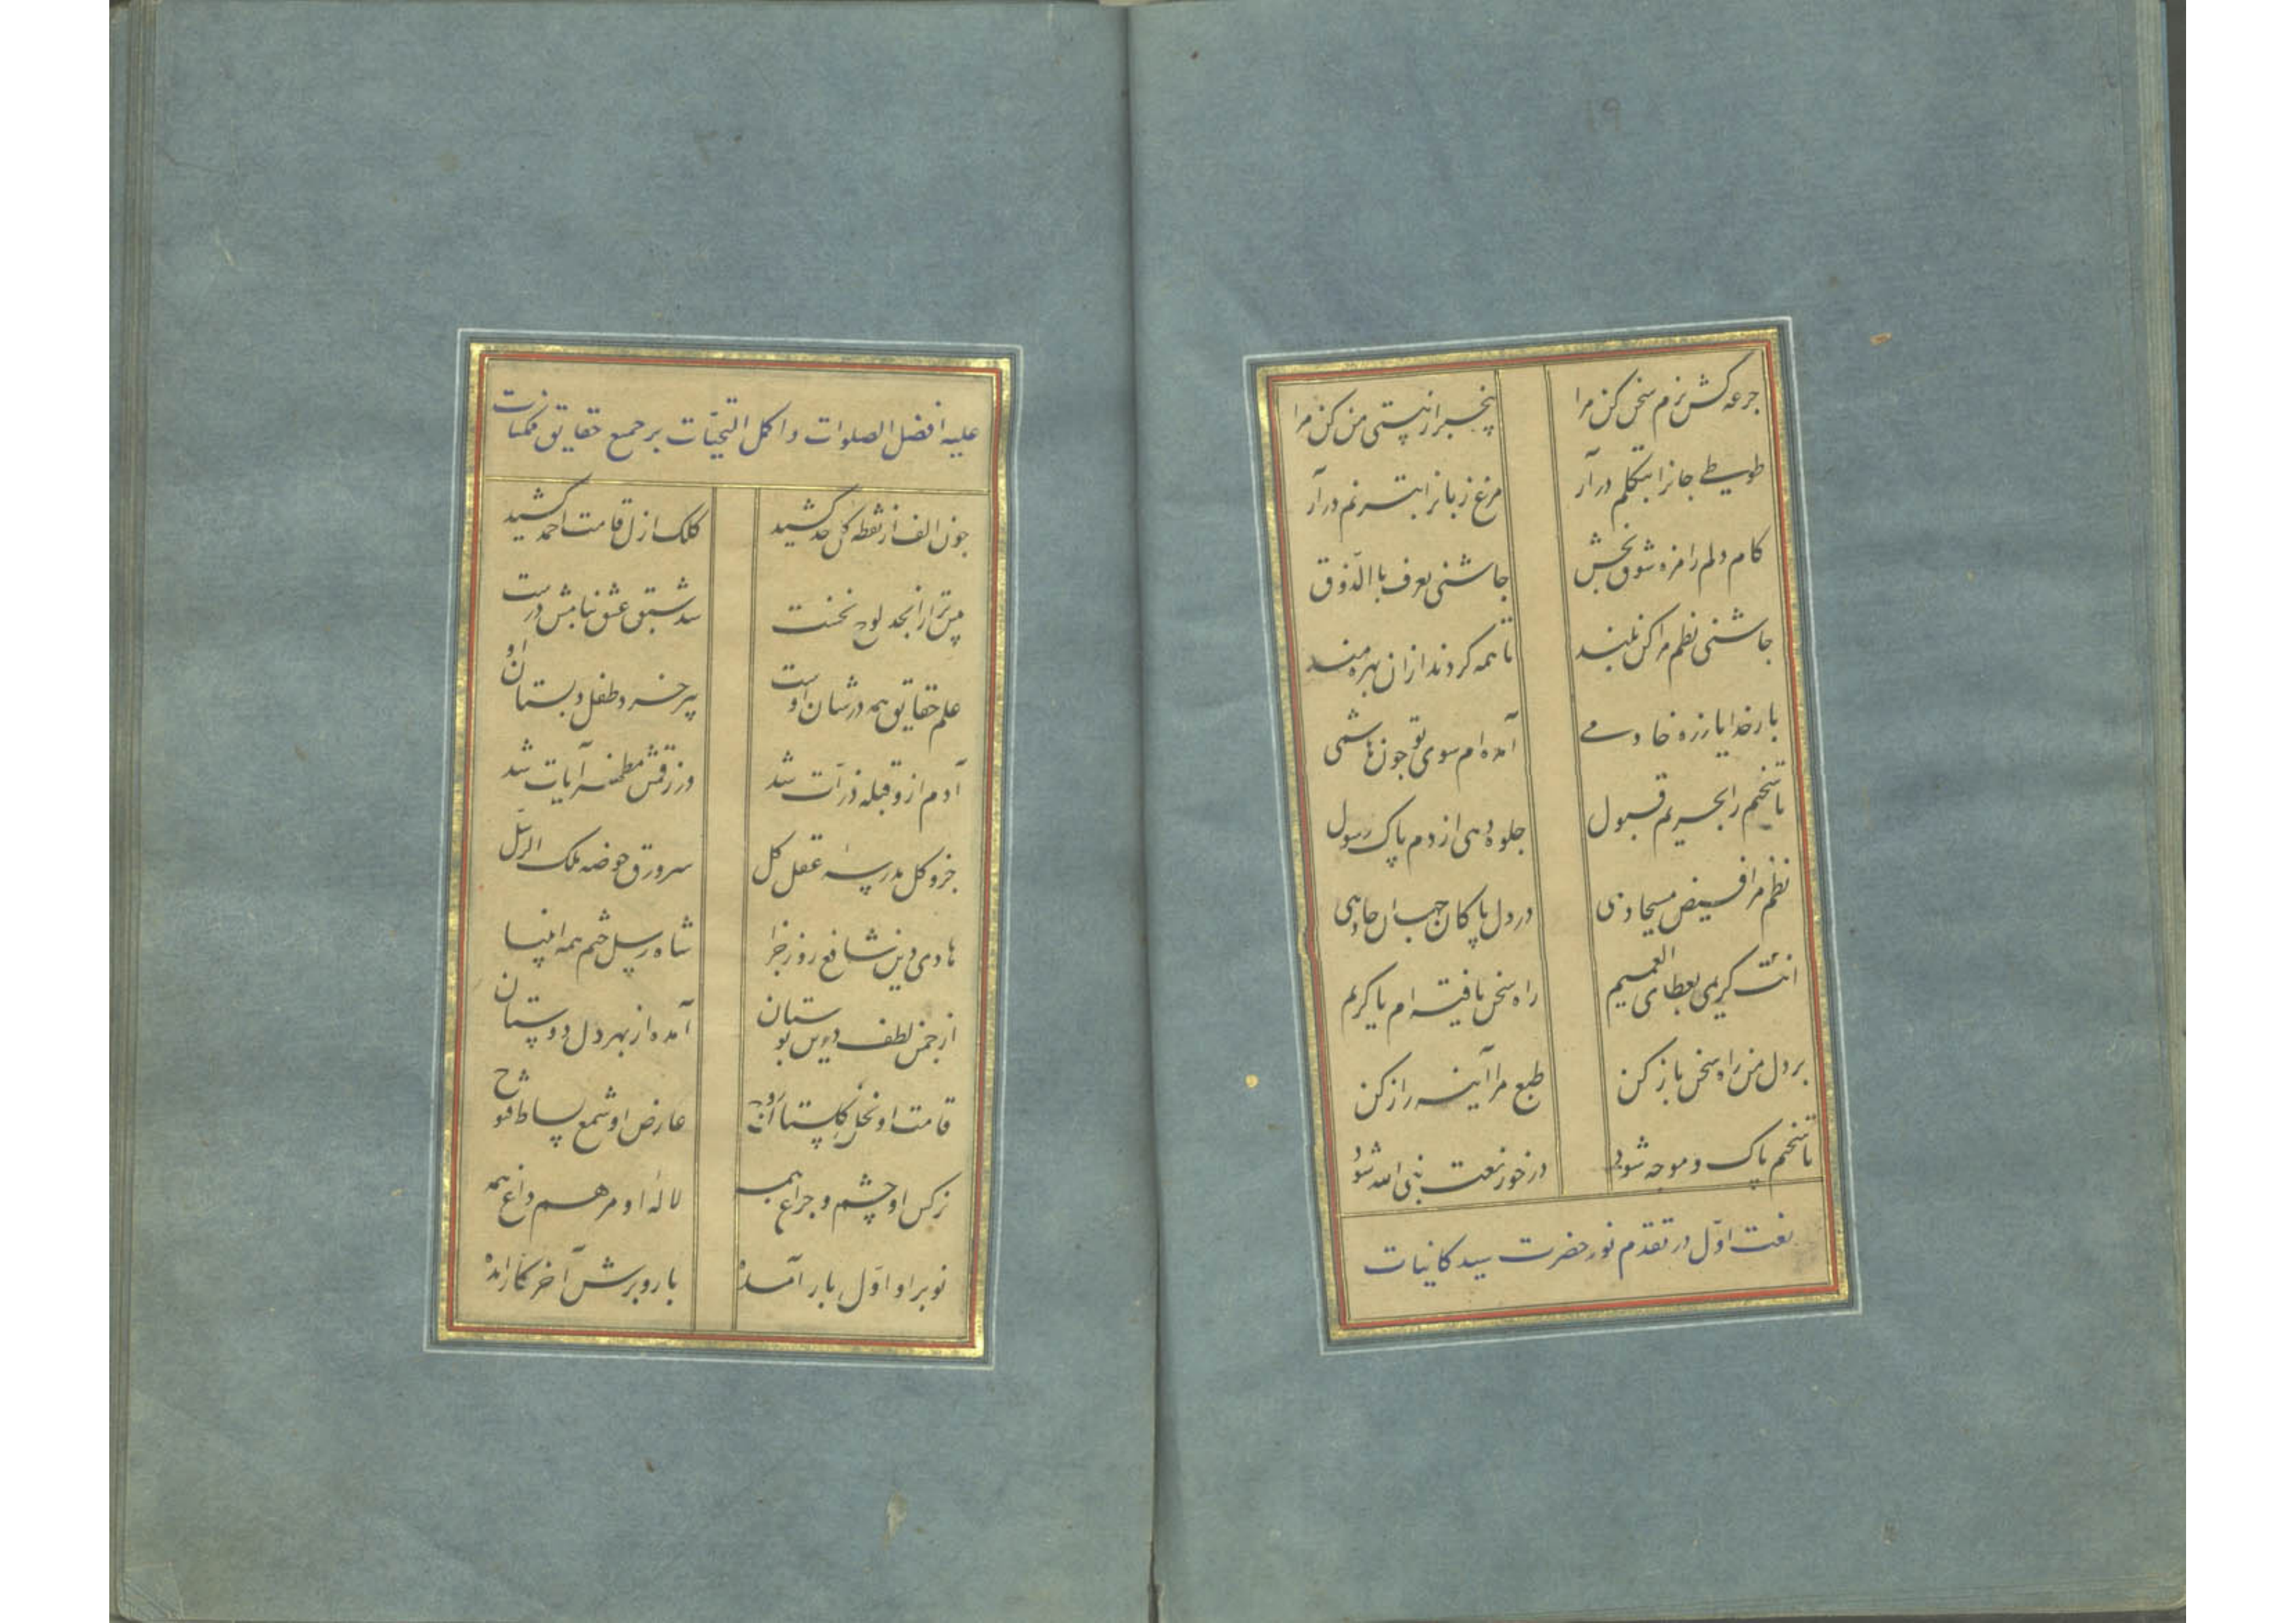 ۱۹
جرعه کش بزم سخن کن مرا بیخبر از هستی من کن مرا
طوطی جانرا بتکلم در آر مرغ زبانرا بترنم در آر
کام دلم را مزه شوق بخش چاشنی یعرف بالذوق
چاشنی نظم مرا کن بلند تا همه کردند ازان بهره مند
بار خدایا زره خادمی آمده ام سوی تو چون هاشمی
تا سخنم را بحریم قبول جلوه دهی از دم پاک رسول
نظم مرا فیض مسیحا دهی در دل پاکان جهان جا دهی
انت کریمی بعطای العمیم راه سخن یافته ام یا کریم
بر دل من راه سخن باز کن طبع مرا آینه راز کن
تا سخنم پاک و موجه شود در خور نعت نبی الله شود
نعت اوّل در تقدم نور حضرت سید کاینات
علیه افضل الصلوات و اکمل التحیّات بر جمیع حقایق ممکنات
چون الف از نقطه کل حد کشید کلک ازل قامت احمد کشید
پیشتر از ابجد لوح نخست شد سبق عشق بنامش درست
علم حقایق همه در شان اوست پیر خرد طفل دبستان او
آدم ازو قبله ذرات شد ورقش مظهر آیات شد
جزو کل مدرسهٔ عقل کل سرورق حوضه ملک الرسل
هادی دین شافع روز جزا شاه رسل ختم همه انبیا
از چمن لطف درین بوستان آمده از بهر دل دوستان
قامت او نخل گلستان روح عارض او شمع بساط فتوح
نرکس او چشم و چراغ همه لالهٔ او مرهم داغ همه
نوبر او اوّل بار آمده بار و برش آخر کار آمده